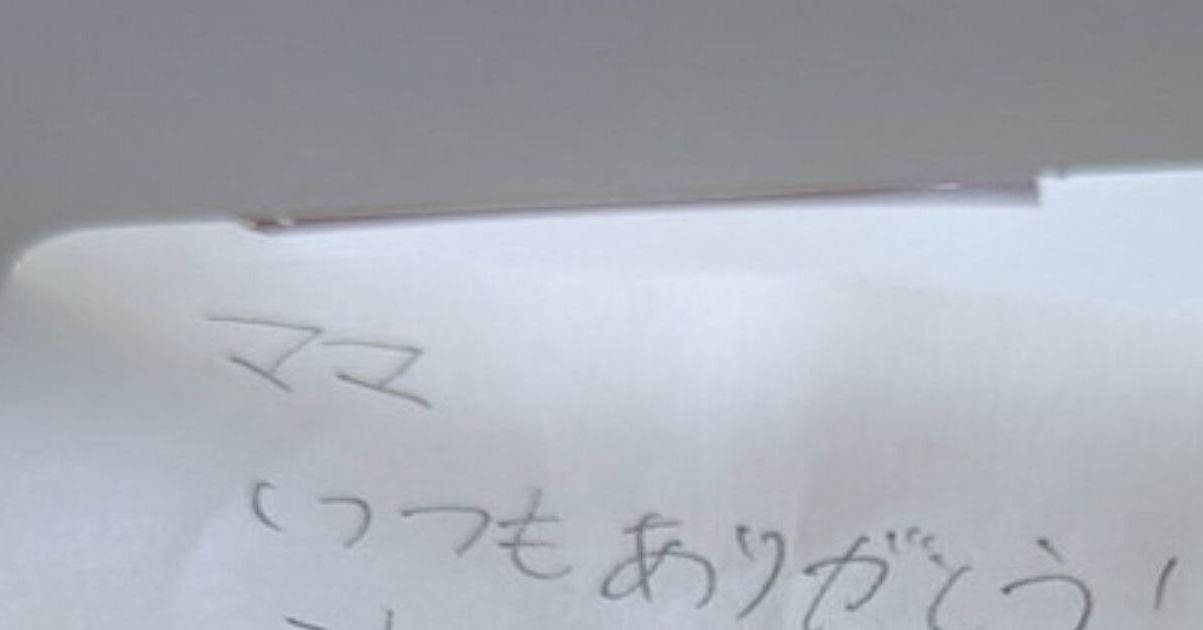 ママ
いつもありがとう!